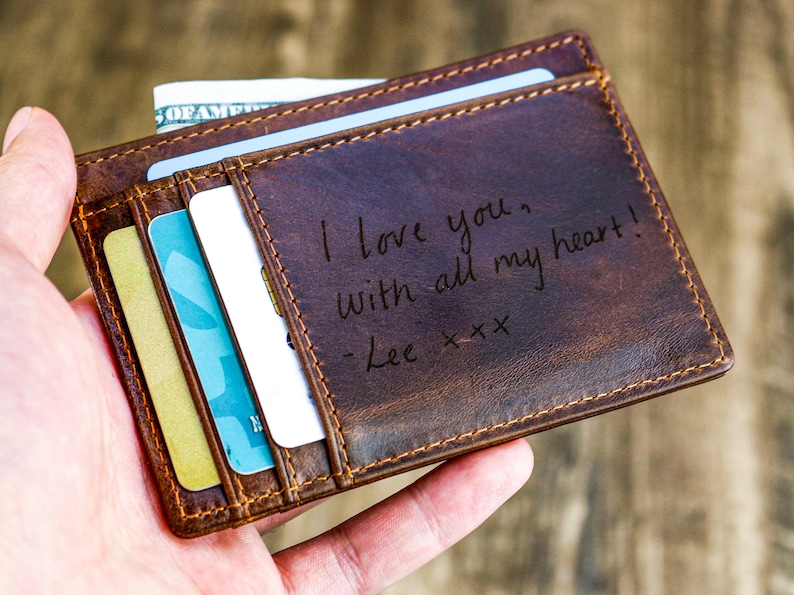 OF AMERI
I love you,
with all my heart!
- Lee xxx
N